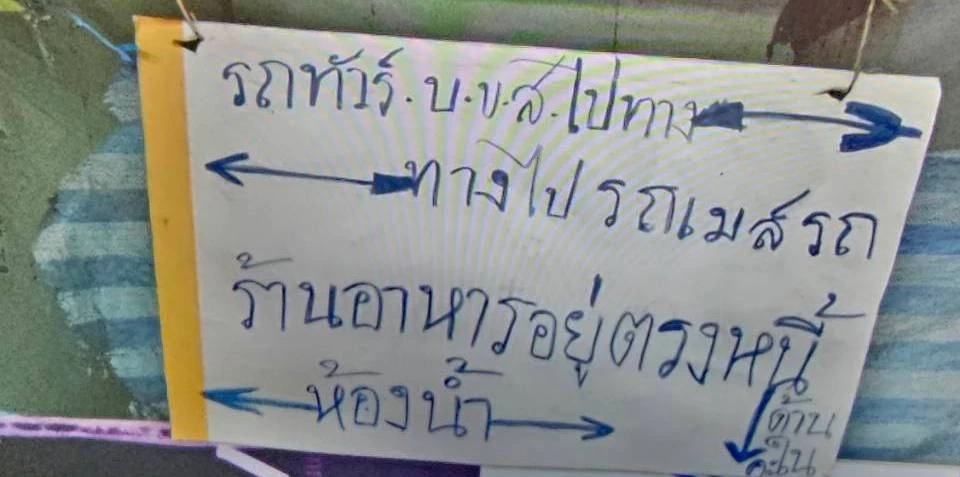 รถทัวร์.บ.ข.ส.ไปทาง
ทางไป รถเมส์รถ
ร้านอาหารอยู่ตรงหนี้
ห้องน้ำ
ด้าน